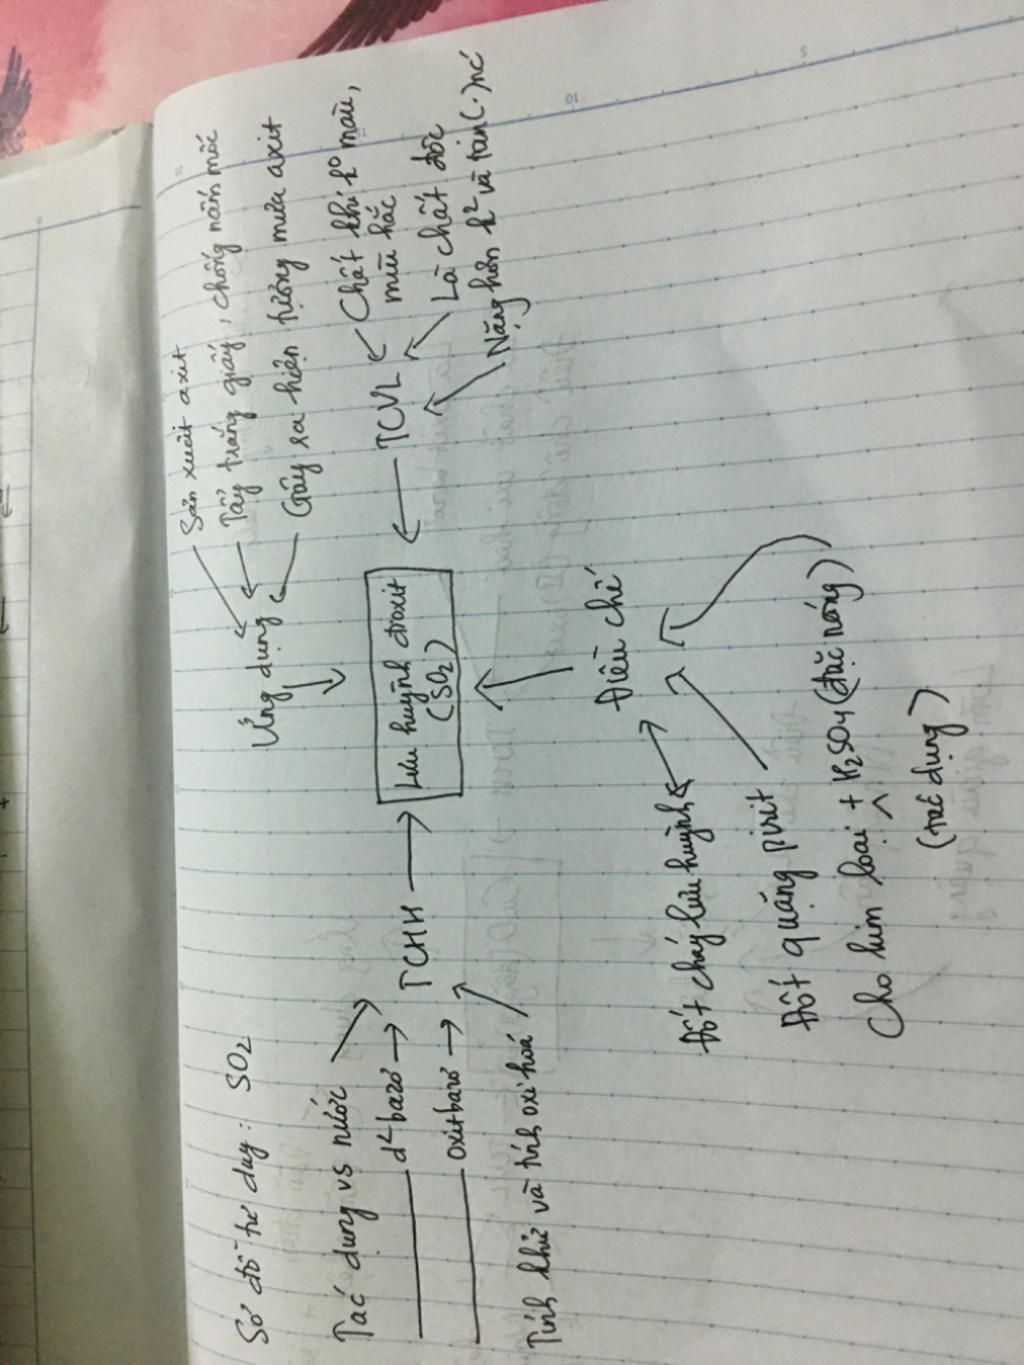 Sơ đồ tư duy: SO2
Ứng dụng
Sản xuất axit
Tẩy trắng giấy, chống nấm mốc
Gây ra hiện tượng mưa axit
Tác dụng vs nước
d² bazơ
oxit bazơ
Tính khử và tính oxi hoá
TCHH
Lưu huỳnh đioxit
(SO2)
TCVL
Chất khí k⁰ màu,
mùi hắc
Là chất độc
Nặng hơn k² và tan (.) nc
Điều chế
Đốt cháy lưu huỳnh
Đốt quặng pirit
Cho kim loại + H2SO4 (đặc nóng)
(tác dụng)
5
10